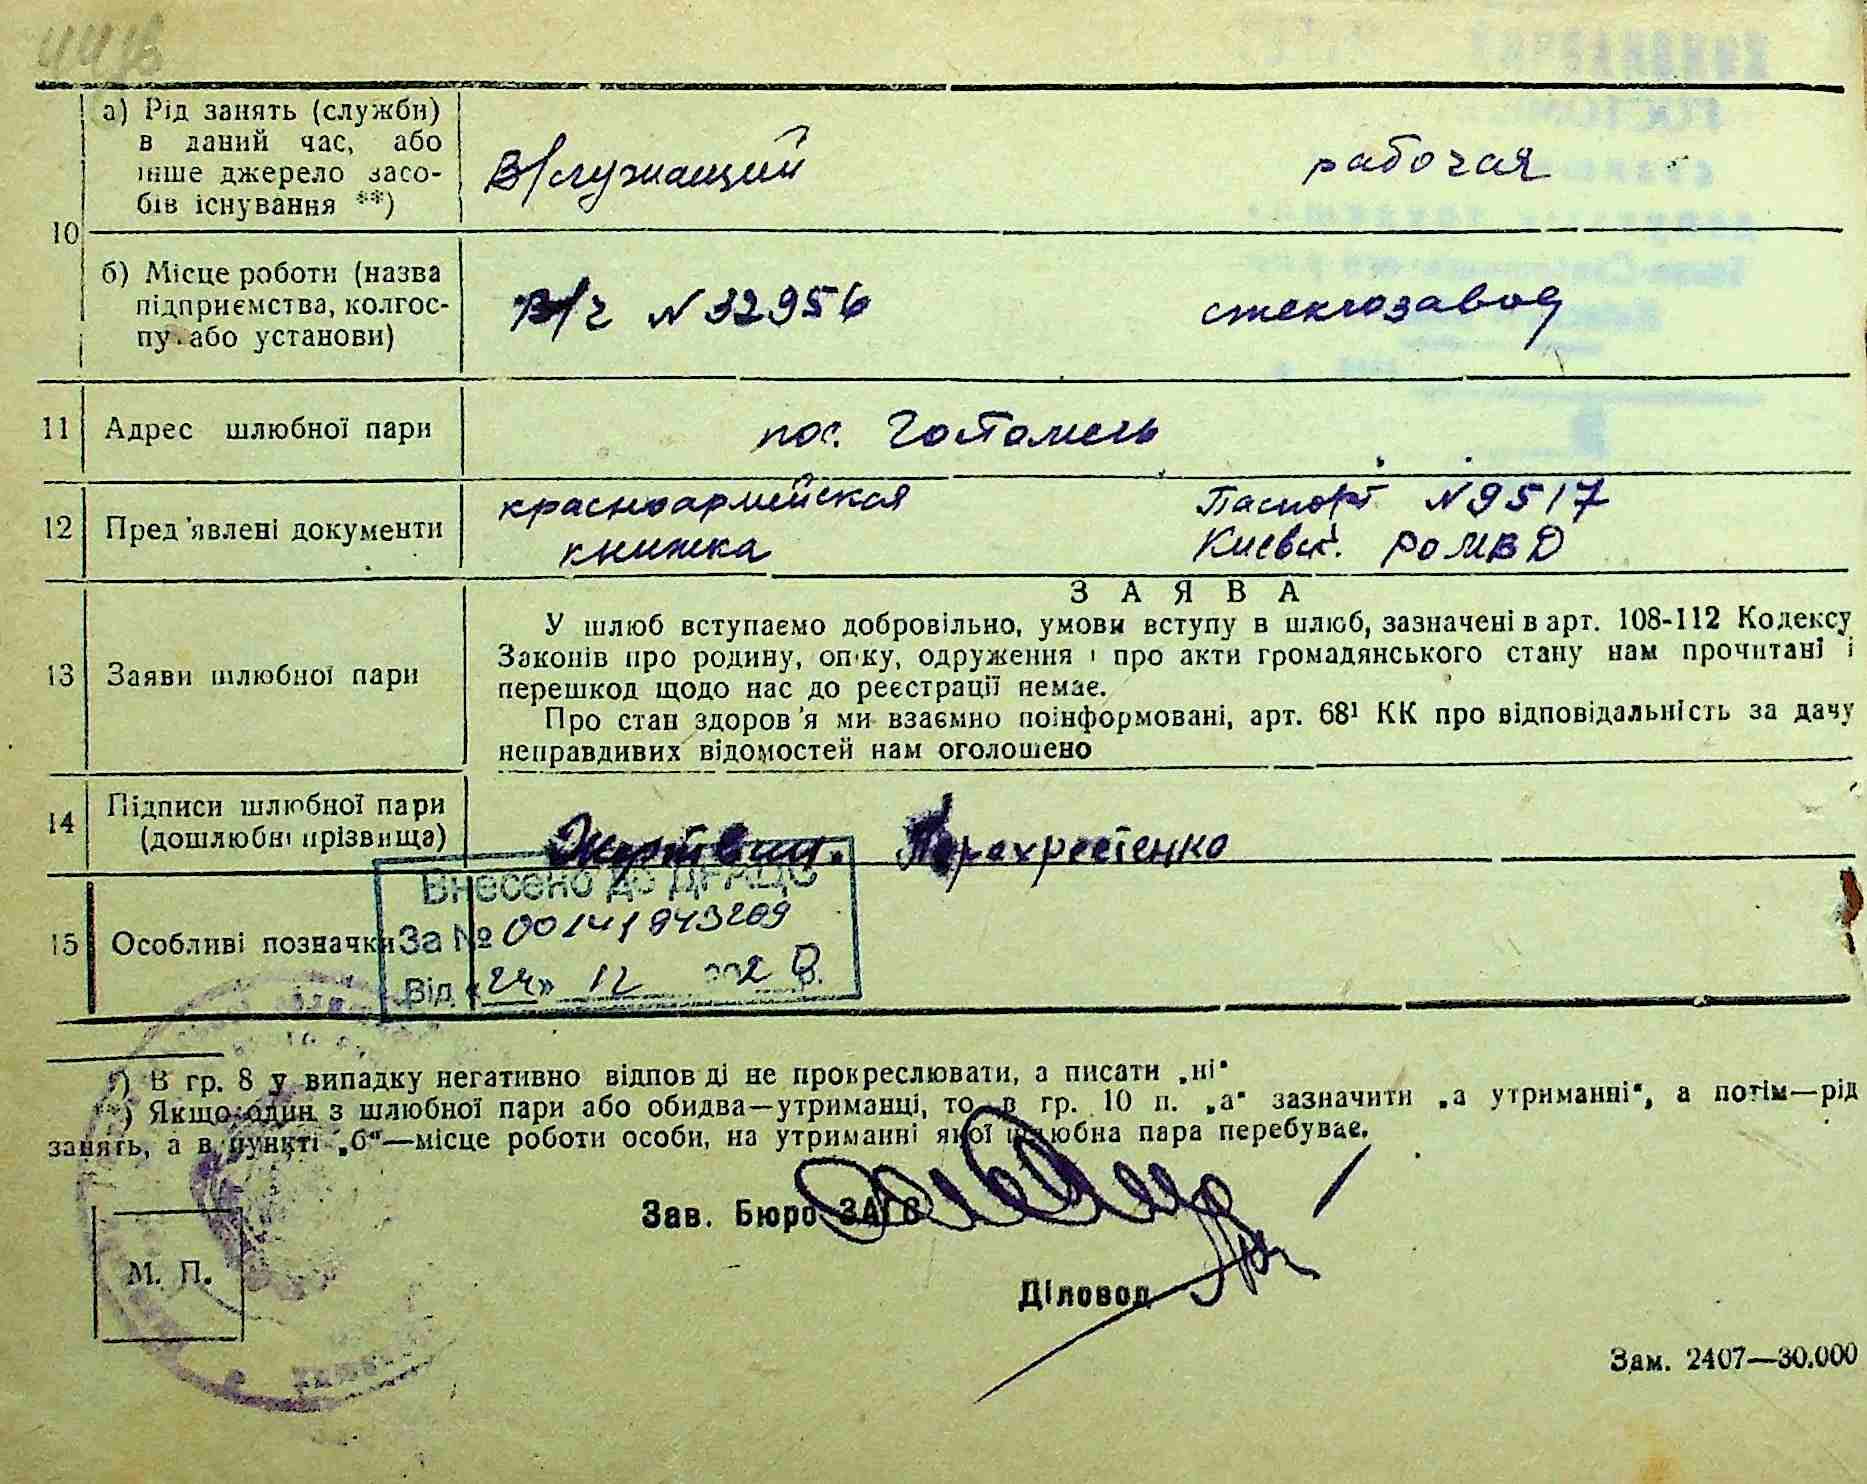 а) Рід занять (служби)
в даний час, або
інше джерело засо-
бів існування **)
В/служащий
рабочая
10
б) Місце роботи (назва
підприємства, колгос-
пу або установи)
В/ч N 32956
стеклозавод
11 Адрес шлюбної пари
пос. Гостомель
12 Пред'явлені документи
красноармейская
книжка
Паспорт N 9517
Киевск. РОМВД
ЗАЯВА
13 Заяви шлюбної пари
У шлюб вступаємо добровільно, умови вступу в шлюб, зазначені в арт. 108-112 Кодексу
Законів про родину, опіку, одруження і про акти громадянського стану нам прочитані і
перешкод щодо нас до реєстрації немає.
Про стан здоров'я ми взаємно поінформовані, арт. 68¹ КК про відповідальність за дачу
неправдивих відомостей нам оголошено
14 Підписи шлюбної пари
(дошлюбні прізвища)
Перехрестенко
15 Особливі позначки
Внесено до ДРАЦС
За № 00141943269
Від «24» 12
*) В гр. 8 у випадку негативно відповіді не прокреслювати, а писати „ні"
**) Якщо один з шлюбної пари або обидва—утриманці, то в гр. 10 п. „а" зазначити „а утриманні", а потім—рід
занять, а в пункті „б"—місце роботи особи, на утриманні якої шлюбна пара перебуває.
Зав. Бюро ЗАГС
Діловод
М. П.
Зам. 2407—30.000